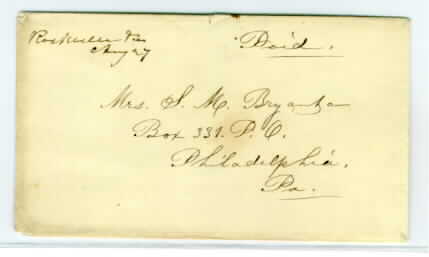 Paid.
Aug 27
Mrs. S. M. Bryant
Box 331. P. O.
Philadelphia.
Pa.